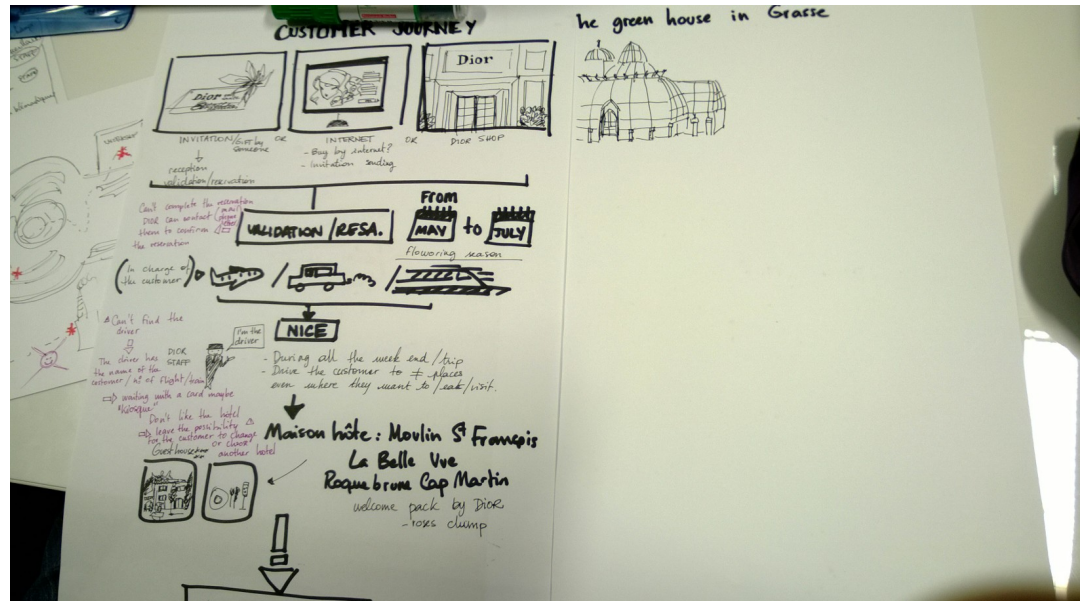 CUSTOMER JOURNEY
he green house in Grasse
Dior
Dior
INVITATION/GIFT by someone
OR
INTERNET
OR
DIOR SHOP
- Buy by internet?
- Invitation sending
reception
validation/reservation
Can't complete the reservation
DIOR can contact
them to confirm
the reservation
VALIDATION/RESA.
From
MAY
to
JULY
Flowering season
(In charge of
the customer)
/
/
NICE
Can't find the
driver
The driver has
the name of the
customer / n° of flight/train
waiting with a card maybe
DIOR
STAFF
I'm the
driver
- During all the week end/trip
- Drive the customer to ≠ places
even where they want to /eat/visit.
Don't like the hotel
leave the possibility
for the customer to change
or choose
another hotel
Guest house
Maison hôte: Moulin St François
La Belle Vue
Roquebrune Cap Martin
welcome pack by DIOR
- roses clump